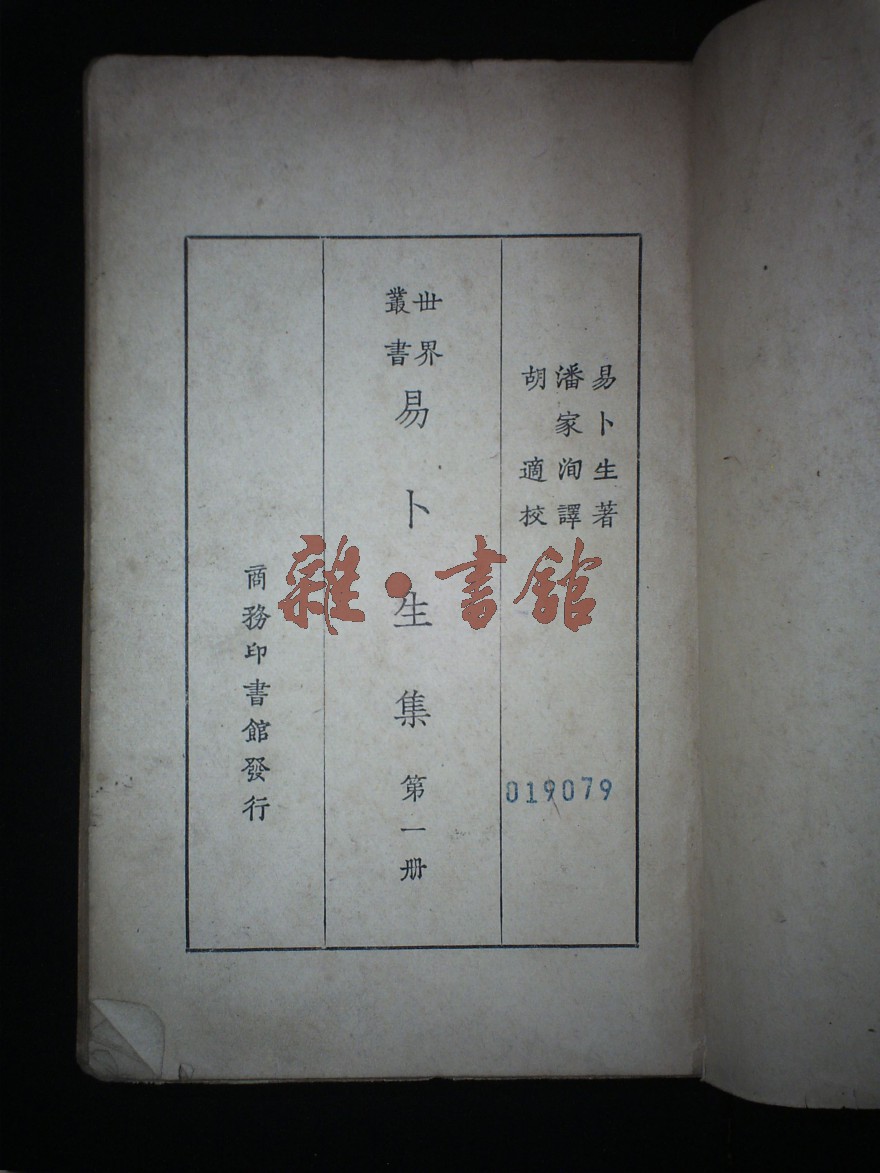 易卜生著
潘家洵譯
胡適校
世界
叢書
易卜生集 第一册
商務印書館發行
019079
雜·書館